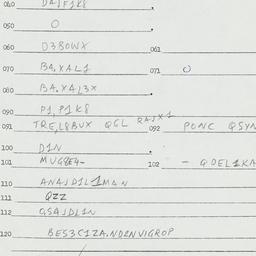 040 DAJF1K8
050 O
060 D3BOWX 061
070 BA.XAL1 071 O
080 BA.XAL3X
090 P1,P1K8
091 TRE,L8BUX QGL QAJX1 092 PONC QSYN
100 D1N
101 MVG8E4- 102 - QDEL1KA
110 ANAJD1L1MAN
111 QZZ
112 QSAJDL1N
120 BES3C1ZA.ND2NVIGROP